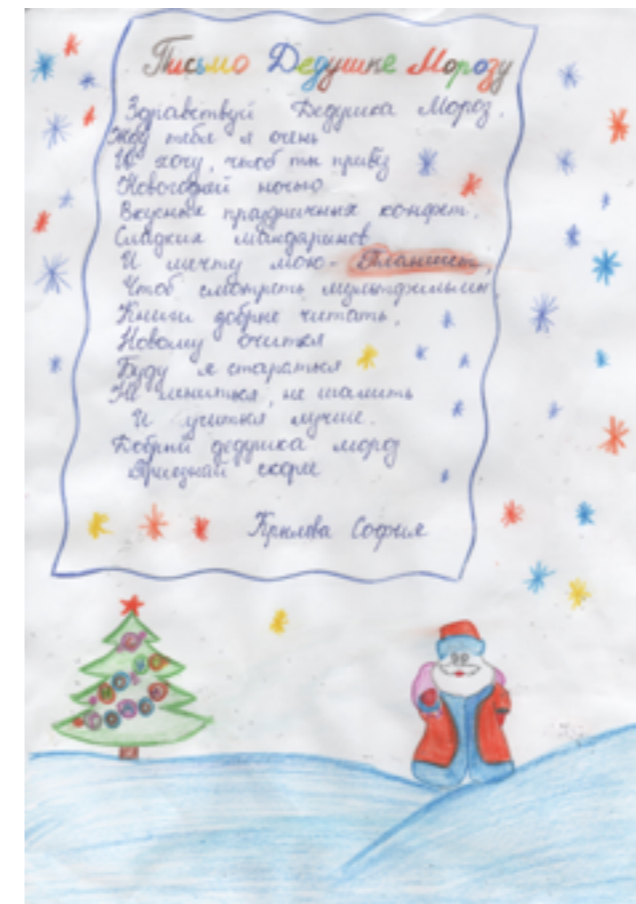 Письмо Дедушке Морозу
Здравствуй Дедушка Мороз.
Жду тебя я очень
И хочу, чтоб ты привёз
Новогодней ночью
Вкусных праздничных конфет.
Сладких мандаринов
И мечту мою - Планшет,
Чтоб смотреть мультфильмы
Книги добрые читать.
Новому учиться
Буду я стараться
Не лениться, не шалить
И учиться лучше.
Добрый дедушка мороз
Приезжай скорее
Крылова София